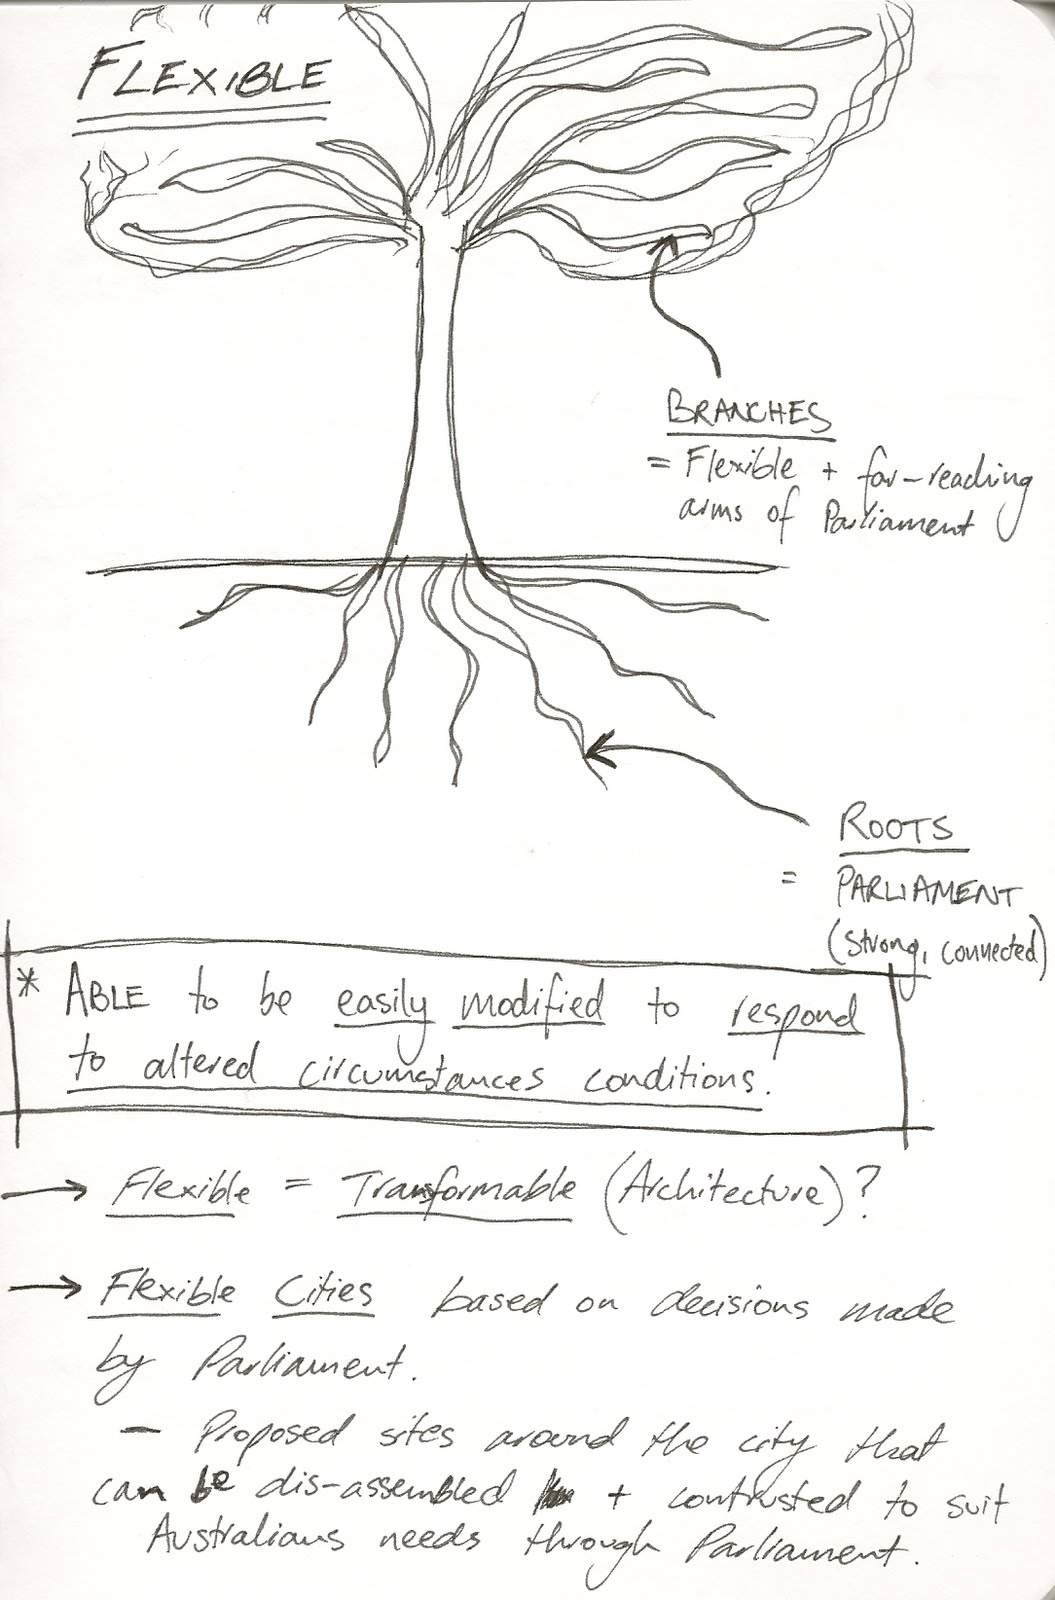 FLEXIBLE
BRANCHES
= Flexible + far-reaching
arms of Parliament
ROOTS
= PARLIAMENT
(strong, connected)
* ABLE to be easily modified to respond
to altered circumstances conditions.
→ Flexible = Transformable (Architecture)?
→ Flexible Cities based on decisions made
by Parliament.
- Proposed sites around the city that
can be dis-assembled + contrusted to suit
Australians needs through Parliament.